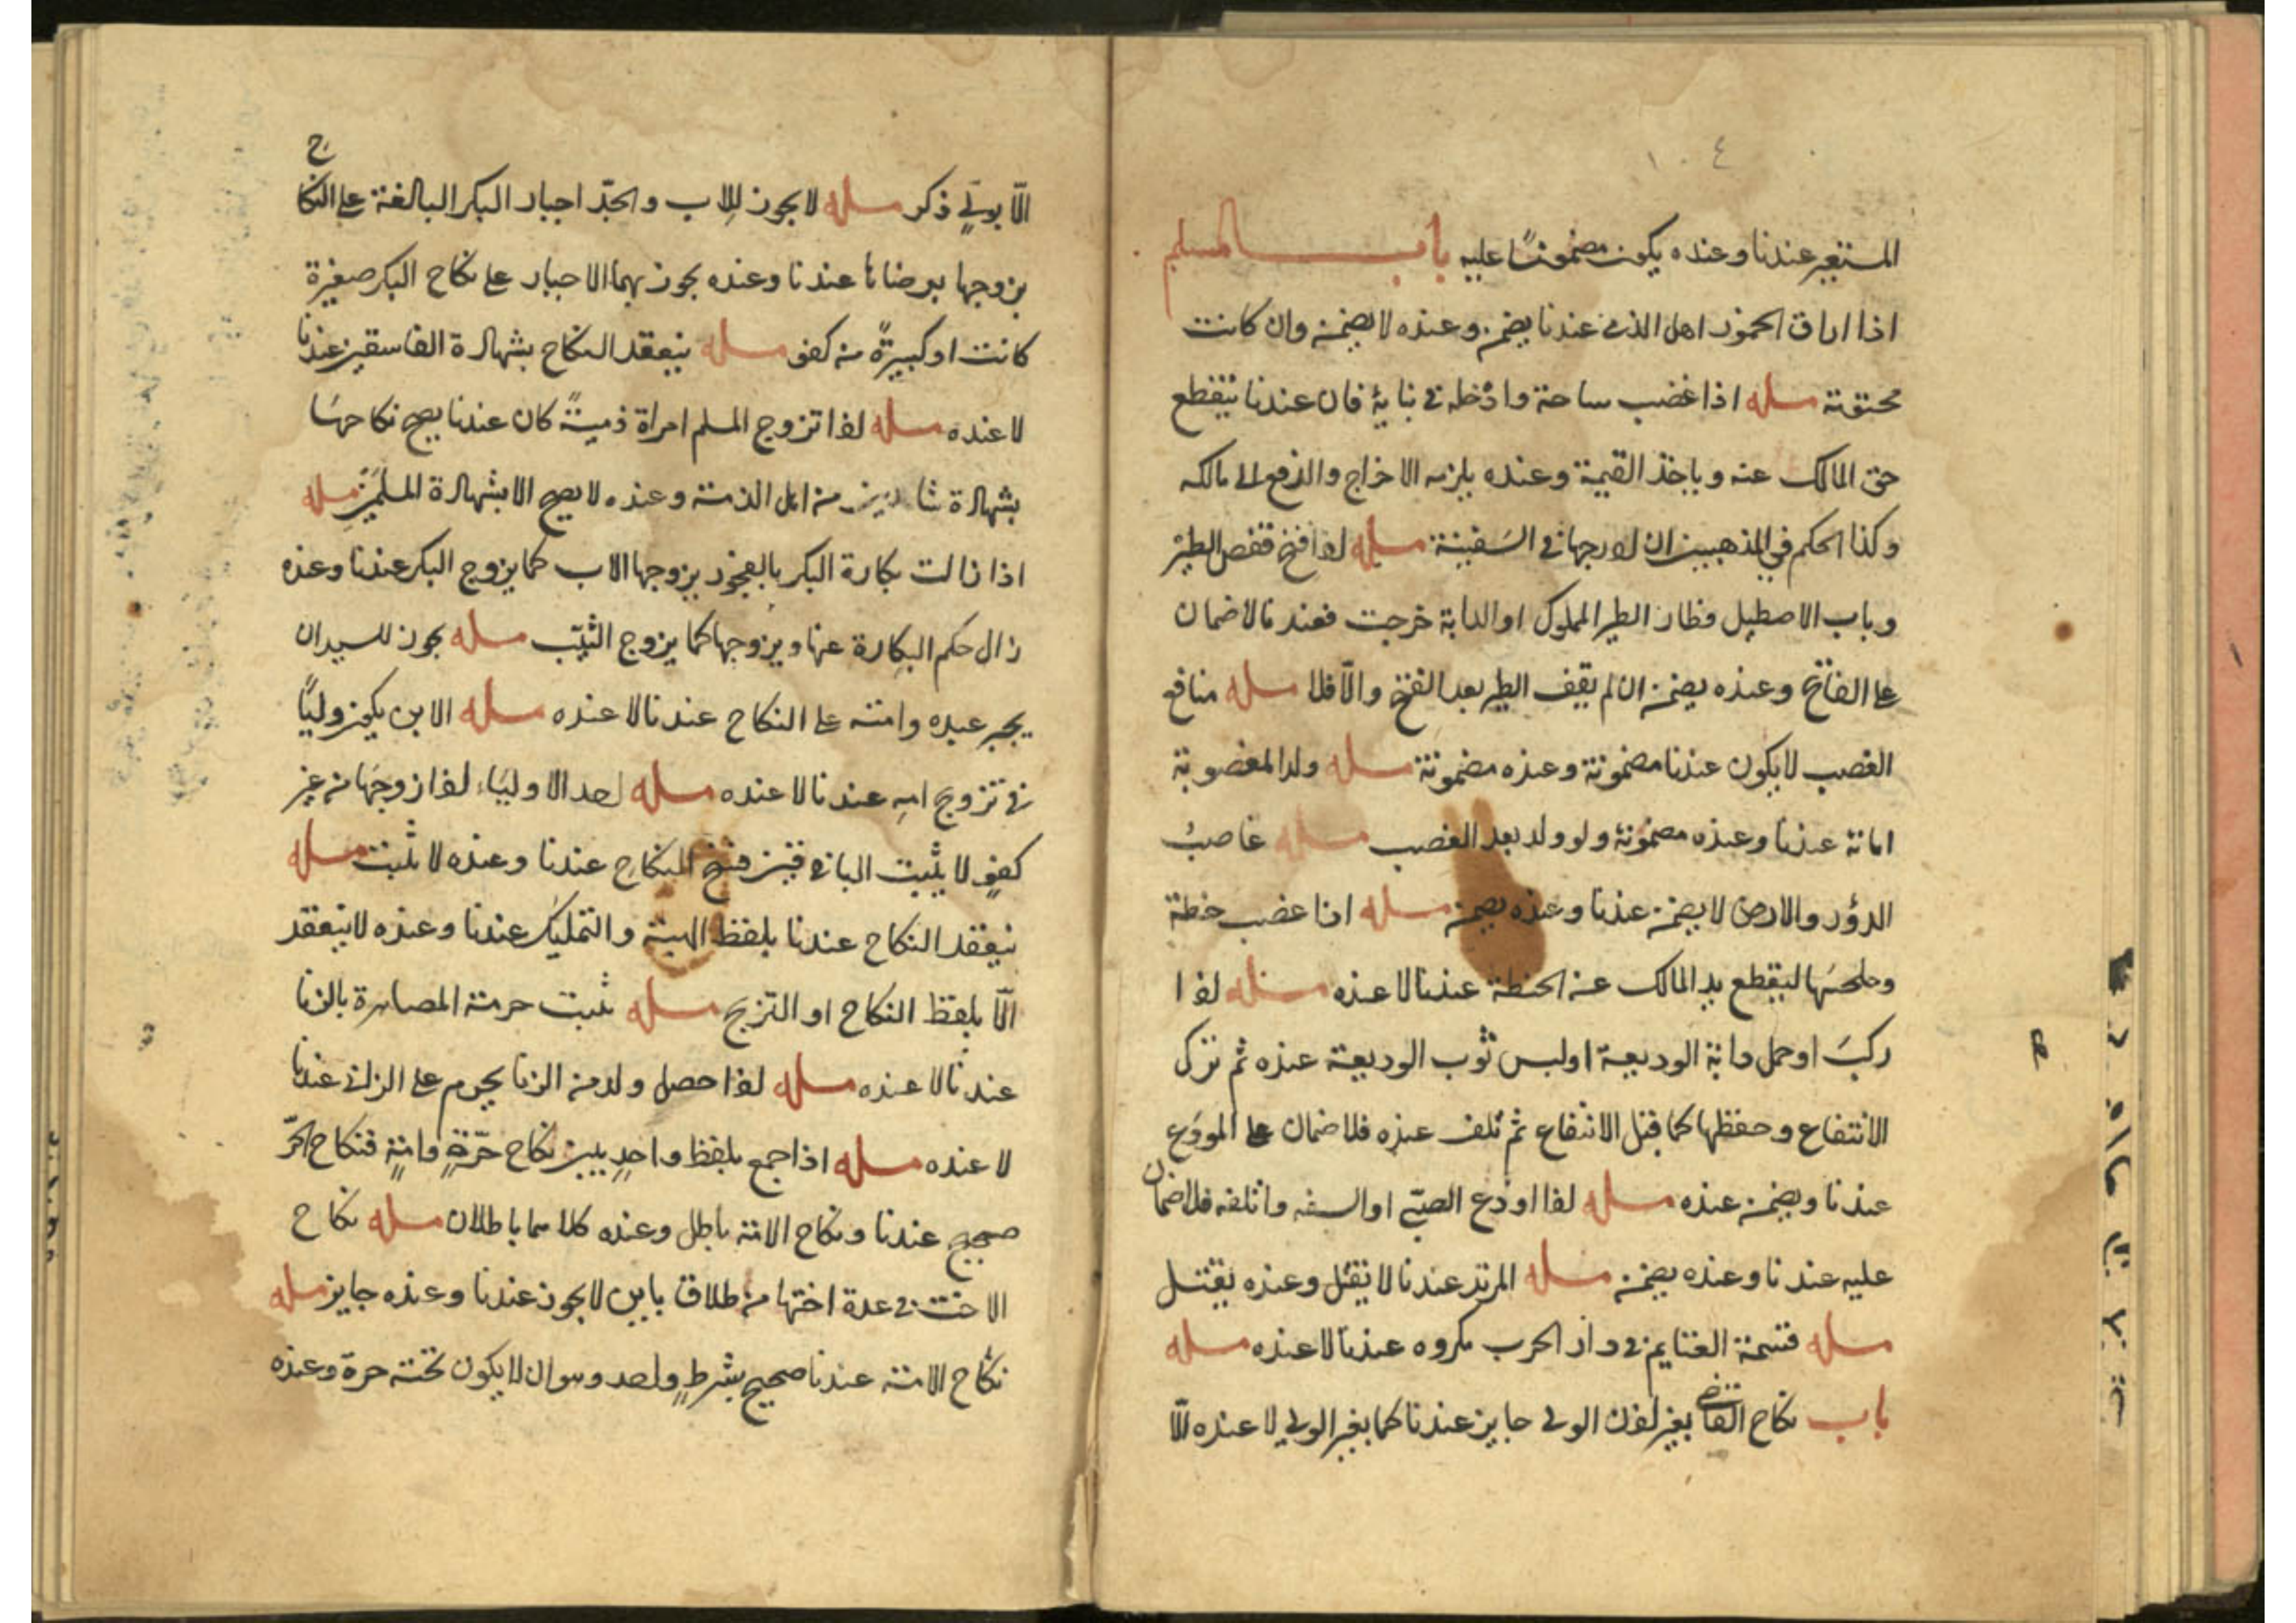 ١٠٤
المستعير عندنا وعنده يكون مضمونًا عليه باب المسلم
اذا اراق الخمور اهل الذمة عندنا يضمن وعنده لا يضمن وان كانت
محترقة مسله اذا غصب ساحة وادخله في بنايه فان عندنا ينقطع
حق المالك عنه وياخذ القيمة وعنده يلزمه الاخراج والدفع الى مالكه
وكذا الحكم في المذهبين ان ادرجها في السفينة مسله اذا فتح قفص الطير
وباب الاصطبل فطار الطير المملوك او الدابة خرجت فعندنا لا ضمان
على الفاتح وعنده يضمن ان لم يقف الطير بعد الفتح والّا فلا مسله منافع
الغصب لا يكون عندنا مضمونة وعنده مضمونة مسله ولد المغصوبة
امانة عندنا وعنده مضمونة ولو ولد بعد الغصب مسله غاصب
الدور والارض لا يضمن عندنا وعنده يضمن مسله اذا غصب حنطة
وطحنها لينقطع يد المالك عن الحنطة عندنا لا عنده مسئله اذا
ركب او حمل دابة الوديعة او لبس ثوب الوديعة عنده ثم ترك
الانتفاع وحفظها كما قبل الانتفاع ثم تلف عنده فلا ضمان على المودَع
عندنا ويضمن عنده مسله اذا اودع الصبي او السفه واتلفه فلا ضمان
عليه عندنا وعنده يضمن مسله المرتد عندنا لا يقتل وعنده يقتل
مسله قسمة الغنايم في دار الحرب مكروه عندنا لا عنده مسله
باب نكاح القاضي بغير اذن الولي جايز عندنا كما بغير الولي لا عنده الّا
الّا بولي ذكر مسله لا يجوز للاب والجدّ اجبار البكر البالغة على النكاح
يزوجها برضاها عندنا وعنده يجوز بهما الاجبار على نكاح البكر صغيرة
كانت او كبيرةً من كفو مسله ينعقد النكاح بشهادة الفاسقين عندنا
لا عنده مسله اذا تزوج المسلم امراة ذميةً كان عندنا يصح نكاحها
بشهادة شاهدين من اهل الذمة وعنده لا يصح الا بشهادة المسلمين مسله
اذا زالت بكارة البكر بالفجور يزوجها الاب كما يزوج البكر عندنا وعنده
زال حكم البكارة عنها ويزوجها كما يزوج الثيّب مسله يجوز للسيد ان
يجبر عبده وامته على النكاح عندنا لا عنده مسله الابن يكون وليًا
في تزوج امه عندنا لا عنده مسله احد الاولياء اذا زوجها من غير
كفوٍ لا يثبت الباقين فسخ النكاح عندنا وعنده لا يثبت مسله
ينعقد النكاح عندنا بلفظ الهبة والتمليك عندنا وعنده لا ينعقد
الّا بلفظ النكاح او التزيج مسله تثبت حرمة المصاهرة بالزنا
عندنا لا عنده مسله اذا حصل ولد من الزنا يحرم على الزاني عندنا
لا عنده مسله اذا جمع بلفظ واحدٍ بين نكاح حرّةٍ وامةٍ فنكاح الحرّ
صحيح عندنا ونكاح الامة باطل وعنده كلاهما باطلان مسله نكاح
الاخت في عدة اختها من طلاق باين لا يجوز عندنا وعنده جايز مسله
نكاح الامة عندنا صحيح بشرطٍ واحد وهو ان لا يكون تحته حرة وعنده